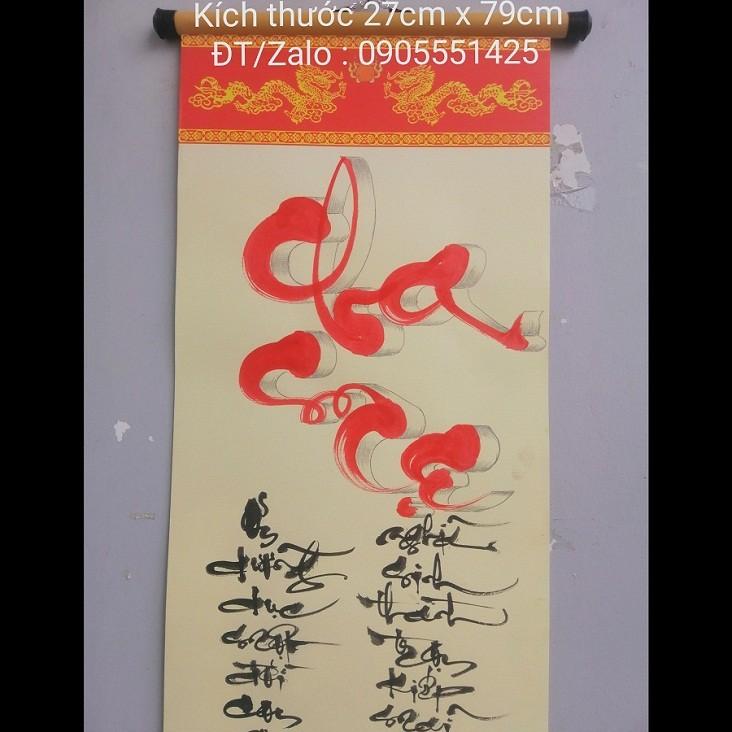 Kích thước 27cm x 79cm
ĐT/Zalo : 0905551425
Cha
Mẹ
Ơn
dưỡng
dục
đời
con
nghĩa
sinh
thành
trọn
kiếp